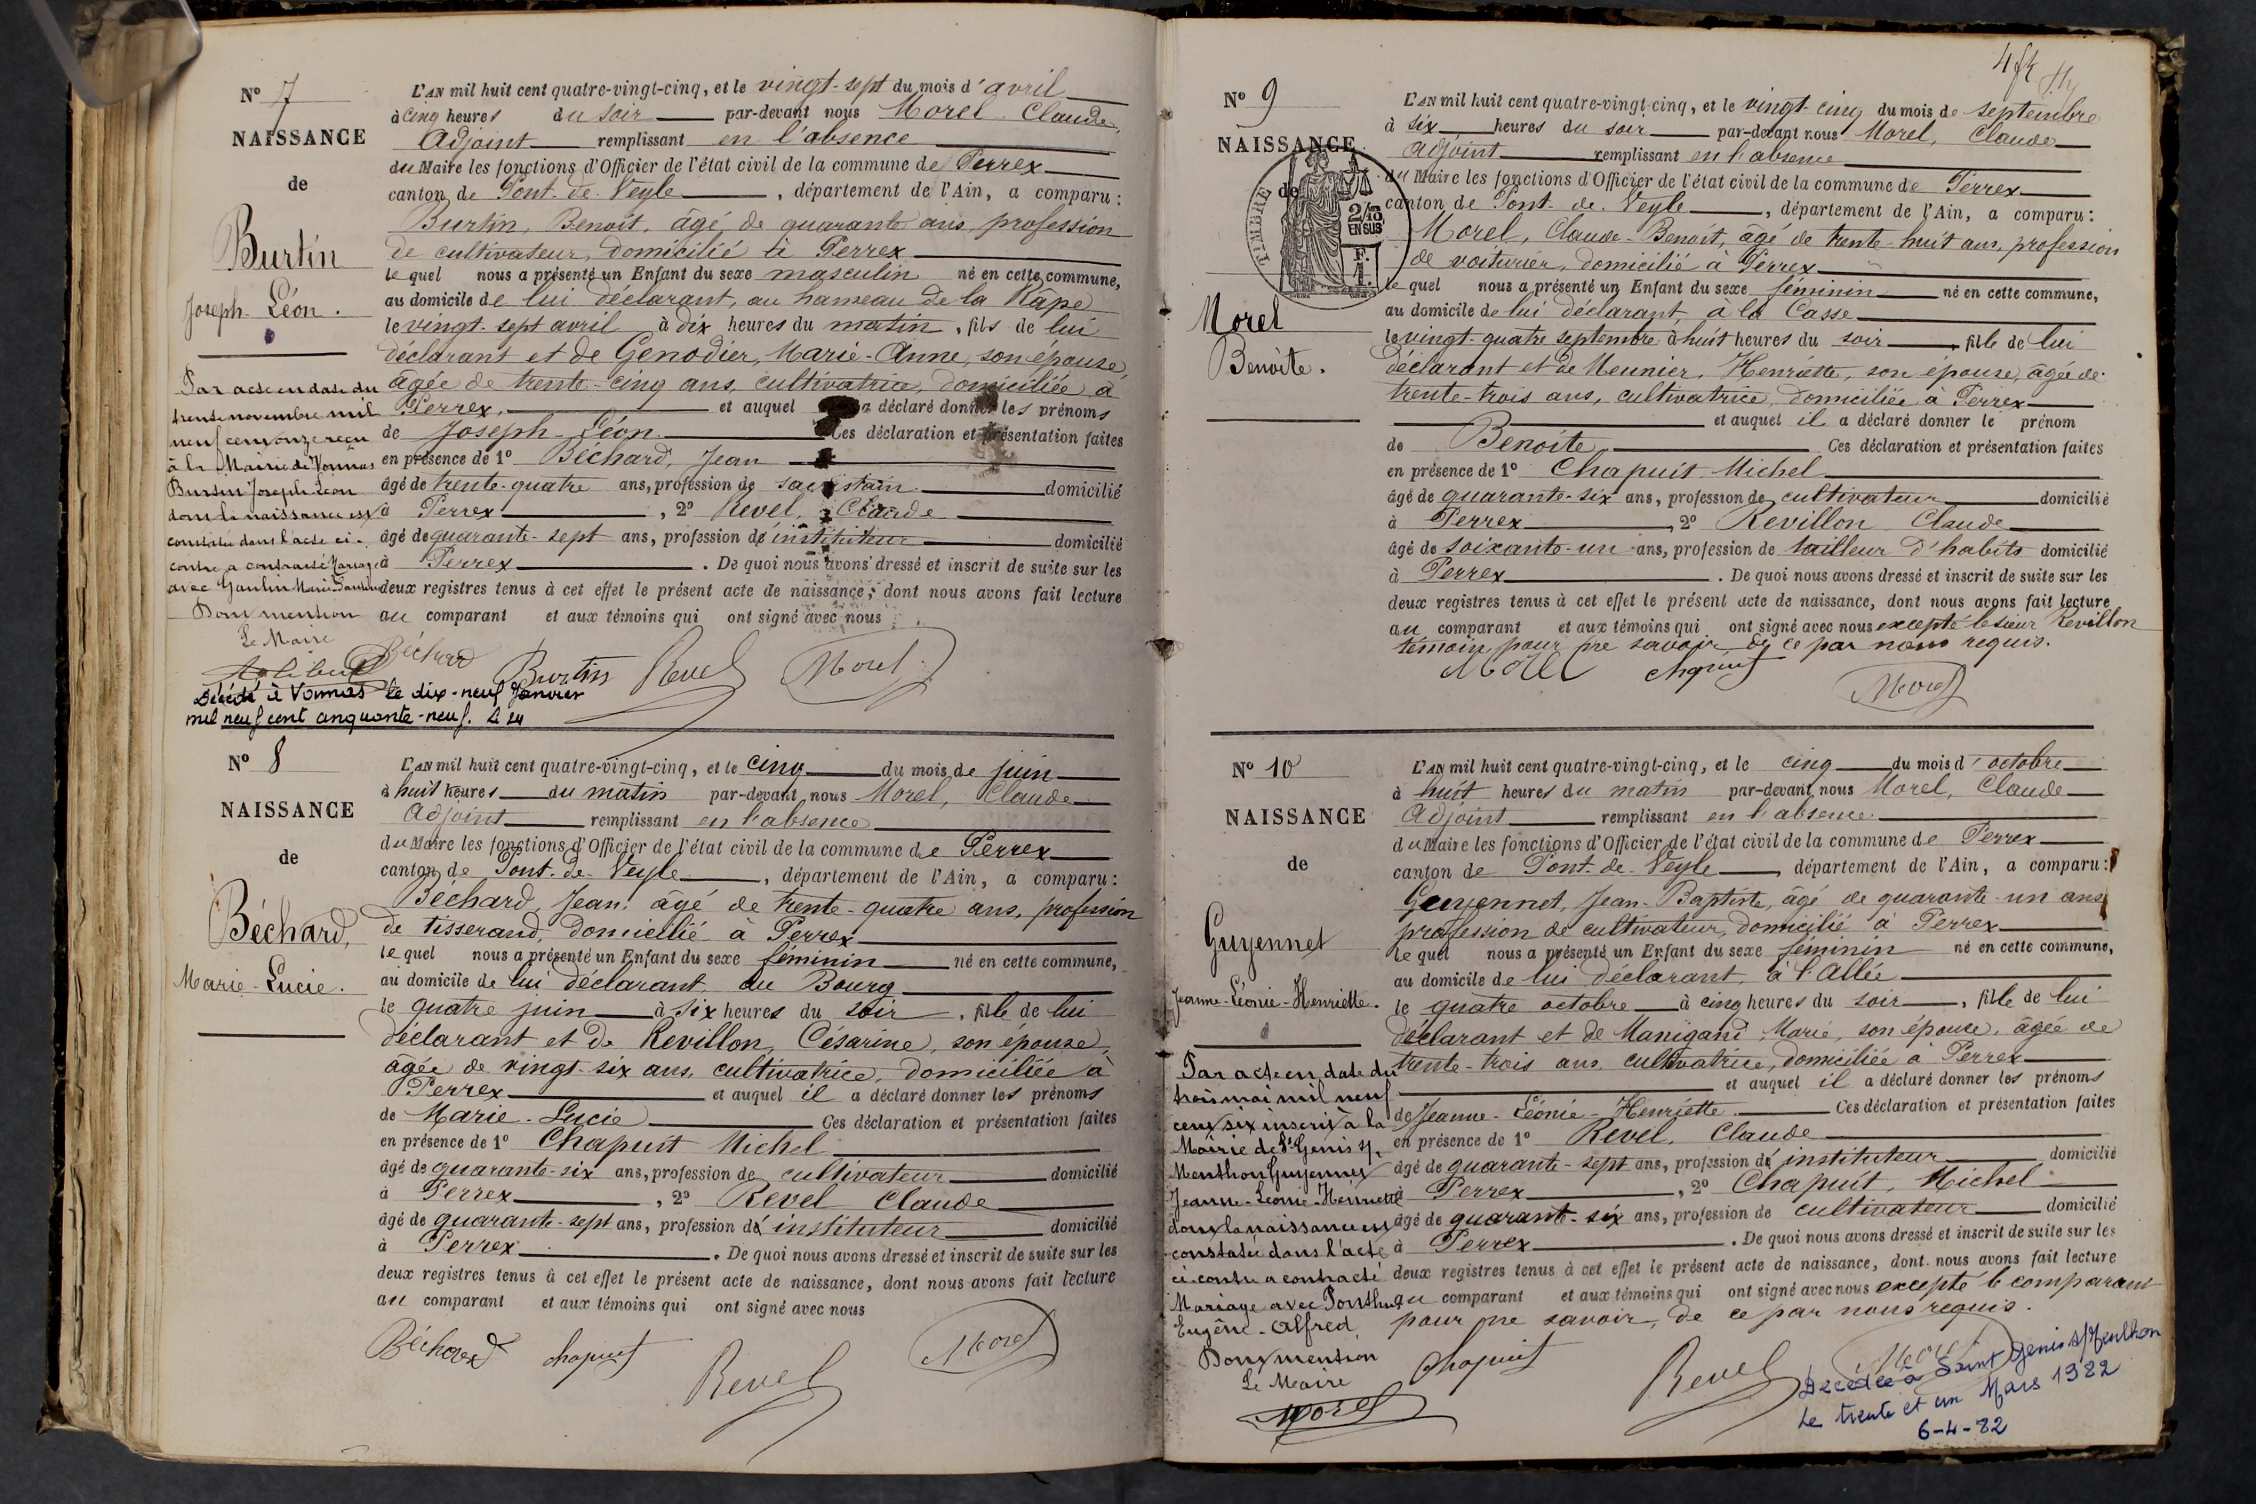 Nº 7
NAISSANCE
de
Burtin
Joseph-Léon.
Par acte en date du
trente novembre mil
neuf cent onze reçu
à la Mairie de Vonnas
Burtin Joseph Léon
dont la naissance est
constatée dans l'acte ci-
contre a contracté Mariage
avec Gaulin Marie
Dont mention
Le Maire
L'AN mil huit cent quatre-vingt-cinq, et le vingt-sept du mois d'avril
à cinq heures du soir par-devant nous Morel Claude,
Adjoint remplissant en l'absence
du Maire les fonctions d'Officier de l'état civil de la commune de Perrex
canton de Pont-de-Veyle, département de l'Ain, a comparu :
Burtin, Benoît, âgé de quarante ans, profession
de cultivateur, domicilié à Perrex
lequel nous a présenté un Enfant du sexe masculin né en cette commune,
au domicile de lui déclarant, au hameau de la Râpe
le vingt-sept avril à dix heures du matin, fils de lui
déclarant et de Genodier, Marie-Anne, son épouse,
âgée de trente-cinq ans, cultivatrice, domiciliée à
Perrex, et auquel a déclaré donner les prénoms
de Joseph-Léon. Ces déclaration et présentation faites
en présence de 1º Béchard, Jean
âgé de trente-quatre ans, profession de sacristain domicilié
à Perrex, 2º Revel, Claude
âgé de quarante-sept ans, profession d'instituteur domicilié
à Perrex. De quoi nous avons dressé et inscrit de suite sur les
deux registres tenus à cet effet le présent acte de naissance, dont nous avons fait lecture
au comparant et aux témoins qui ont signé avec nous
Béchard Burtin Revel Morel
Décédé à Vonnas le dix-neuf Janvier
mil neuf cent cinquante-neuf.
Nº 8
NAISSANCE
de
Béchard,
Marie-Lucie.
L'AN mil huit cent quatre-vingt-cinq, et le cinq du mois de juin
à huit heures du matin par-devant nous Morel, Claude
Adjoint remplissant en l'absence
du Maire les fonctions d'Officier de l'état civil de la commune de Perrex
canton de Pont-de-Veyle, département de l'Ain, a comparu :
Béchard, Jean, âgé de trente-quatre ans, profession
de tisserand, domicilié à Perrex
lequel nous a présenté un Enfant du sexe féminin né en cette commune,
au domicile de lui déclarant, au Bourg
le quatre juin à six heures du soir, fille de lui
déclarant et de Révillon, Césarine, son épouse,
âgée de vingt-six ans, cultivatrice, domiciliée à
Perrex et auquel il a déclaré donner les prénoms
de Marie-Lucie Ces déclaration et présentation faites
en présence de 1º Chapuit Michel
âgé de quarante-six ans, profession de cultivateur domicilié
à Perrex, 2º Revel Claude
âgé de quarante-sept ans, profession d'instituteur domicilié
à Perrex. De quoi nous avons dressé et inscrit de suite sur les
deux registres tenus à cet effet le présent acte de naissance, dont nous avons fait lecture
au comparant et aux témoins qui ont signé avec nous
Béchard Chapuit Revel Morel
Nº 9
NAISSANCE
de
TIMBRE
2/10
EN SUS
F.
1.
Morel
Benoîte.
L'AN mil huit cent quatre-vingt-cinq, et le vingt-cinq du mois de septembre
à six heures du soir par-devant nous Morel, Claude
Adjoint remplissant en l'absence
du Maire les fonctions d'Officier de l'état civil de la commune de Perrex
canton de Pont-de-Veyle, département de l'Ain, a comparu :
Morel, Claude-Benoît, âgé de trente-huit ans, profession
de voiturier, domicilié à Perrex
lequel nous a présenté un Enfant du sexe féminin né en cette commune,
au domicile de lui déclarant, à la Casse
le vingt-quatre septembre à huit heures du soir, fille de lui
déclarant et de Meunier, Henriette, son épouse, âgée de
trente-trois ans, cultivatrice, domiciliée à Perrex
et auquel il a déclaré donner le prénom
de Benoîte, Ces déclaration et présentation faites
en présence de 1º Chapuit Michel
âgé de quarante-six ans, profession de cultivateur domicilié
à Perrex, 2º Revillon Claude
âgé de soixante-un ans, profession de tailleur d'habits domicilié
à Perrex. De quoi nous avons dressé et inscrit de suite sur les
deux registres tenus à cet effet le présent acte de naissance, dont nous avons fait lecture
au comparant et aux témoins qui ont signé avec nous excepté le sieur Revillon
témoin pour ne savoir, de ce par nous requis.
Morel Chapuit Morel
Nº 10
NAISSANCE
de
Guyennet
Jeanne-Léonie-Henriette.
Par acte en date du
trois mai mil neuf
cent six inscrit à la
Mairie de St Genis s/
Menthon Guyennet
Jeanne-Léonie-Henriette
dont la naissance est
constatée dans l'acte
ci-contre a contracté
Mariage avec Ponthus
Eugène-Alfred,
Dont mention
Le Maire
Morel
L'AN mil huit cent quatre-vingt-cinq, et le cinq du mois d'octobre
à huit heures du matin par-devant nous Morel, Claude
Adjoint remplissant en l'absence
du Maire les fonctions d'Officier de l'état civil de la commune de Perrex
canton de Pont-de-Veyle, département de l'Ain, a comparu :
Guyennet, Jean-Baptiste, âgé de quarante-un ans
profession de cultivateur, domicilié à Perrex
lequel nous a présenté un Enfant du sexe féminin né en cette commune,
au domicile de lui déclarant, à l'Allée
le quatre octobre à cinq heures du soir, fille de lui
déclarant et de Manigand, Marie, son épouse, âgée de
trente-trois ans, cultivatrice, domiciliée à Perrex
et auquel il a déclaré donner les prénoms
de Jeanne-Léonie-Henriette Ces déclaration et présentation faites
en présence de 1º Revel, Claude
âgé de quarante-sept ans, profession d'instituteur domicilié
à Perrex, 2º Chapuit, Michel
âgé de quarante-six ans, profession de cultivateur domicilié
à Perrex. De quoi nous avons dressé et inscrit de suite sur les
deux registres tenus à cet effet le présent acte de naissance, dont nous avons fait lecture
au comparant et aux témoins qui ont signé avec nous excepté le comparant
pour ne savoir, de ce par nous requis.
Chapuit Revel Morel
Décédée à Saint Genis s/Menthon
Le trente et un Mars 1982
6-4-82